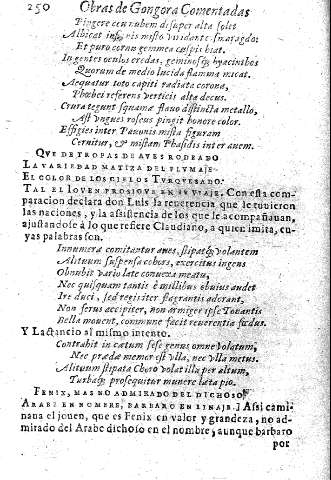 250 Obras de Gongora Comentadas
Pingere ceu nubem desuper alta solet
Albicat insignis misto viridante smaragdo:
Et puro cornu gemmea cuspis hiat.
Ingentes oculos credas, geminosque hyacinthos
Quorum de medio lucida flamma micat.
Aequatur toto capiti radiata corona,
Phœbei referens verticis alta decus.
Crura tegunt squamæ flauo distincta metallo,
Ast vngues roseus pingit honore color.
Effigies inter Pauonis mista figuram
Cernitur, & mistam Phasidis inter auem.
QVE DE TROPAS DE AVES RODEADO
LA VARIEDAD MATIZA DEL PLVMAIE
EL COLOR DE LOS CIELOS TVRQVESADO.
TAL EL IOVEN PROSIGVE SV VIAJE. Con esta com-
paracion declara don Luis la reuerencia que le tuuieron
las naciones, y la assistencia de los que le acompañauan,
ajustandose à lo que refiere Claudiano, a quien imita, cu-
yas palabras son.
Innumeræ comitantur aues, stipatque volantem
Alituum suspensa cohors, exercitus ingens
Obnubit vario late conuexa meatu,
Nec quisquam tantis è millibus obuius audet
Ire duci, sed regis iter fragrantis adorant,
Non ferus accipiter, non armiger ipse Tonantis
Bella mouent, commune facit reuerentia fœdus.
Y Lactancio al mismo intento.
Contrahit in cætum sese genus omne volatum,
Nec prædæ memor est vlla, nec vlla metus.
Alituum stipata Choro volat illa per altum,
Turbaque prosequitur munere læta pio.
FENIX, MAS NO ADMIRADO DEL DICHOSO
ARABE EN NOMBRE, BARBARO EN LINAJE.] Assi cami-
naua el jouen, que es Fenix en valor y grandeza, no ad-
mirado del Arabe dichoso en el nombre, aunque barbaro
por